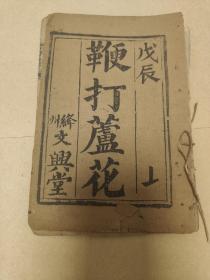 戊辰
鞭打蘆花
上
絳州文興堂